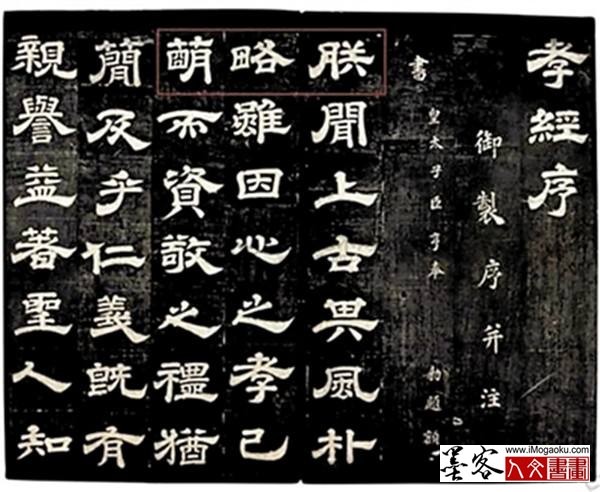 孝經序
御製序并注
皇太子臣亨奉 勅題額
書
朕聞上古其風朴
略雖因心之孝已
萌而資敬之禮猶
簡及乎仁義既有
親譽益著聖人知
墨客
www.iMogaoku.com
人文書畫